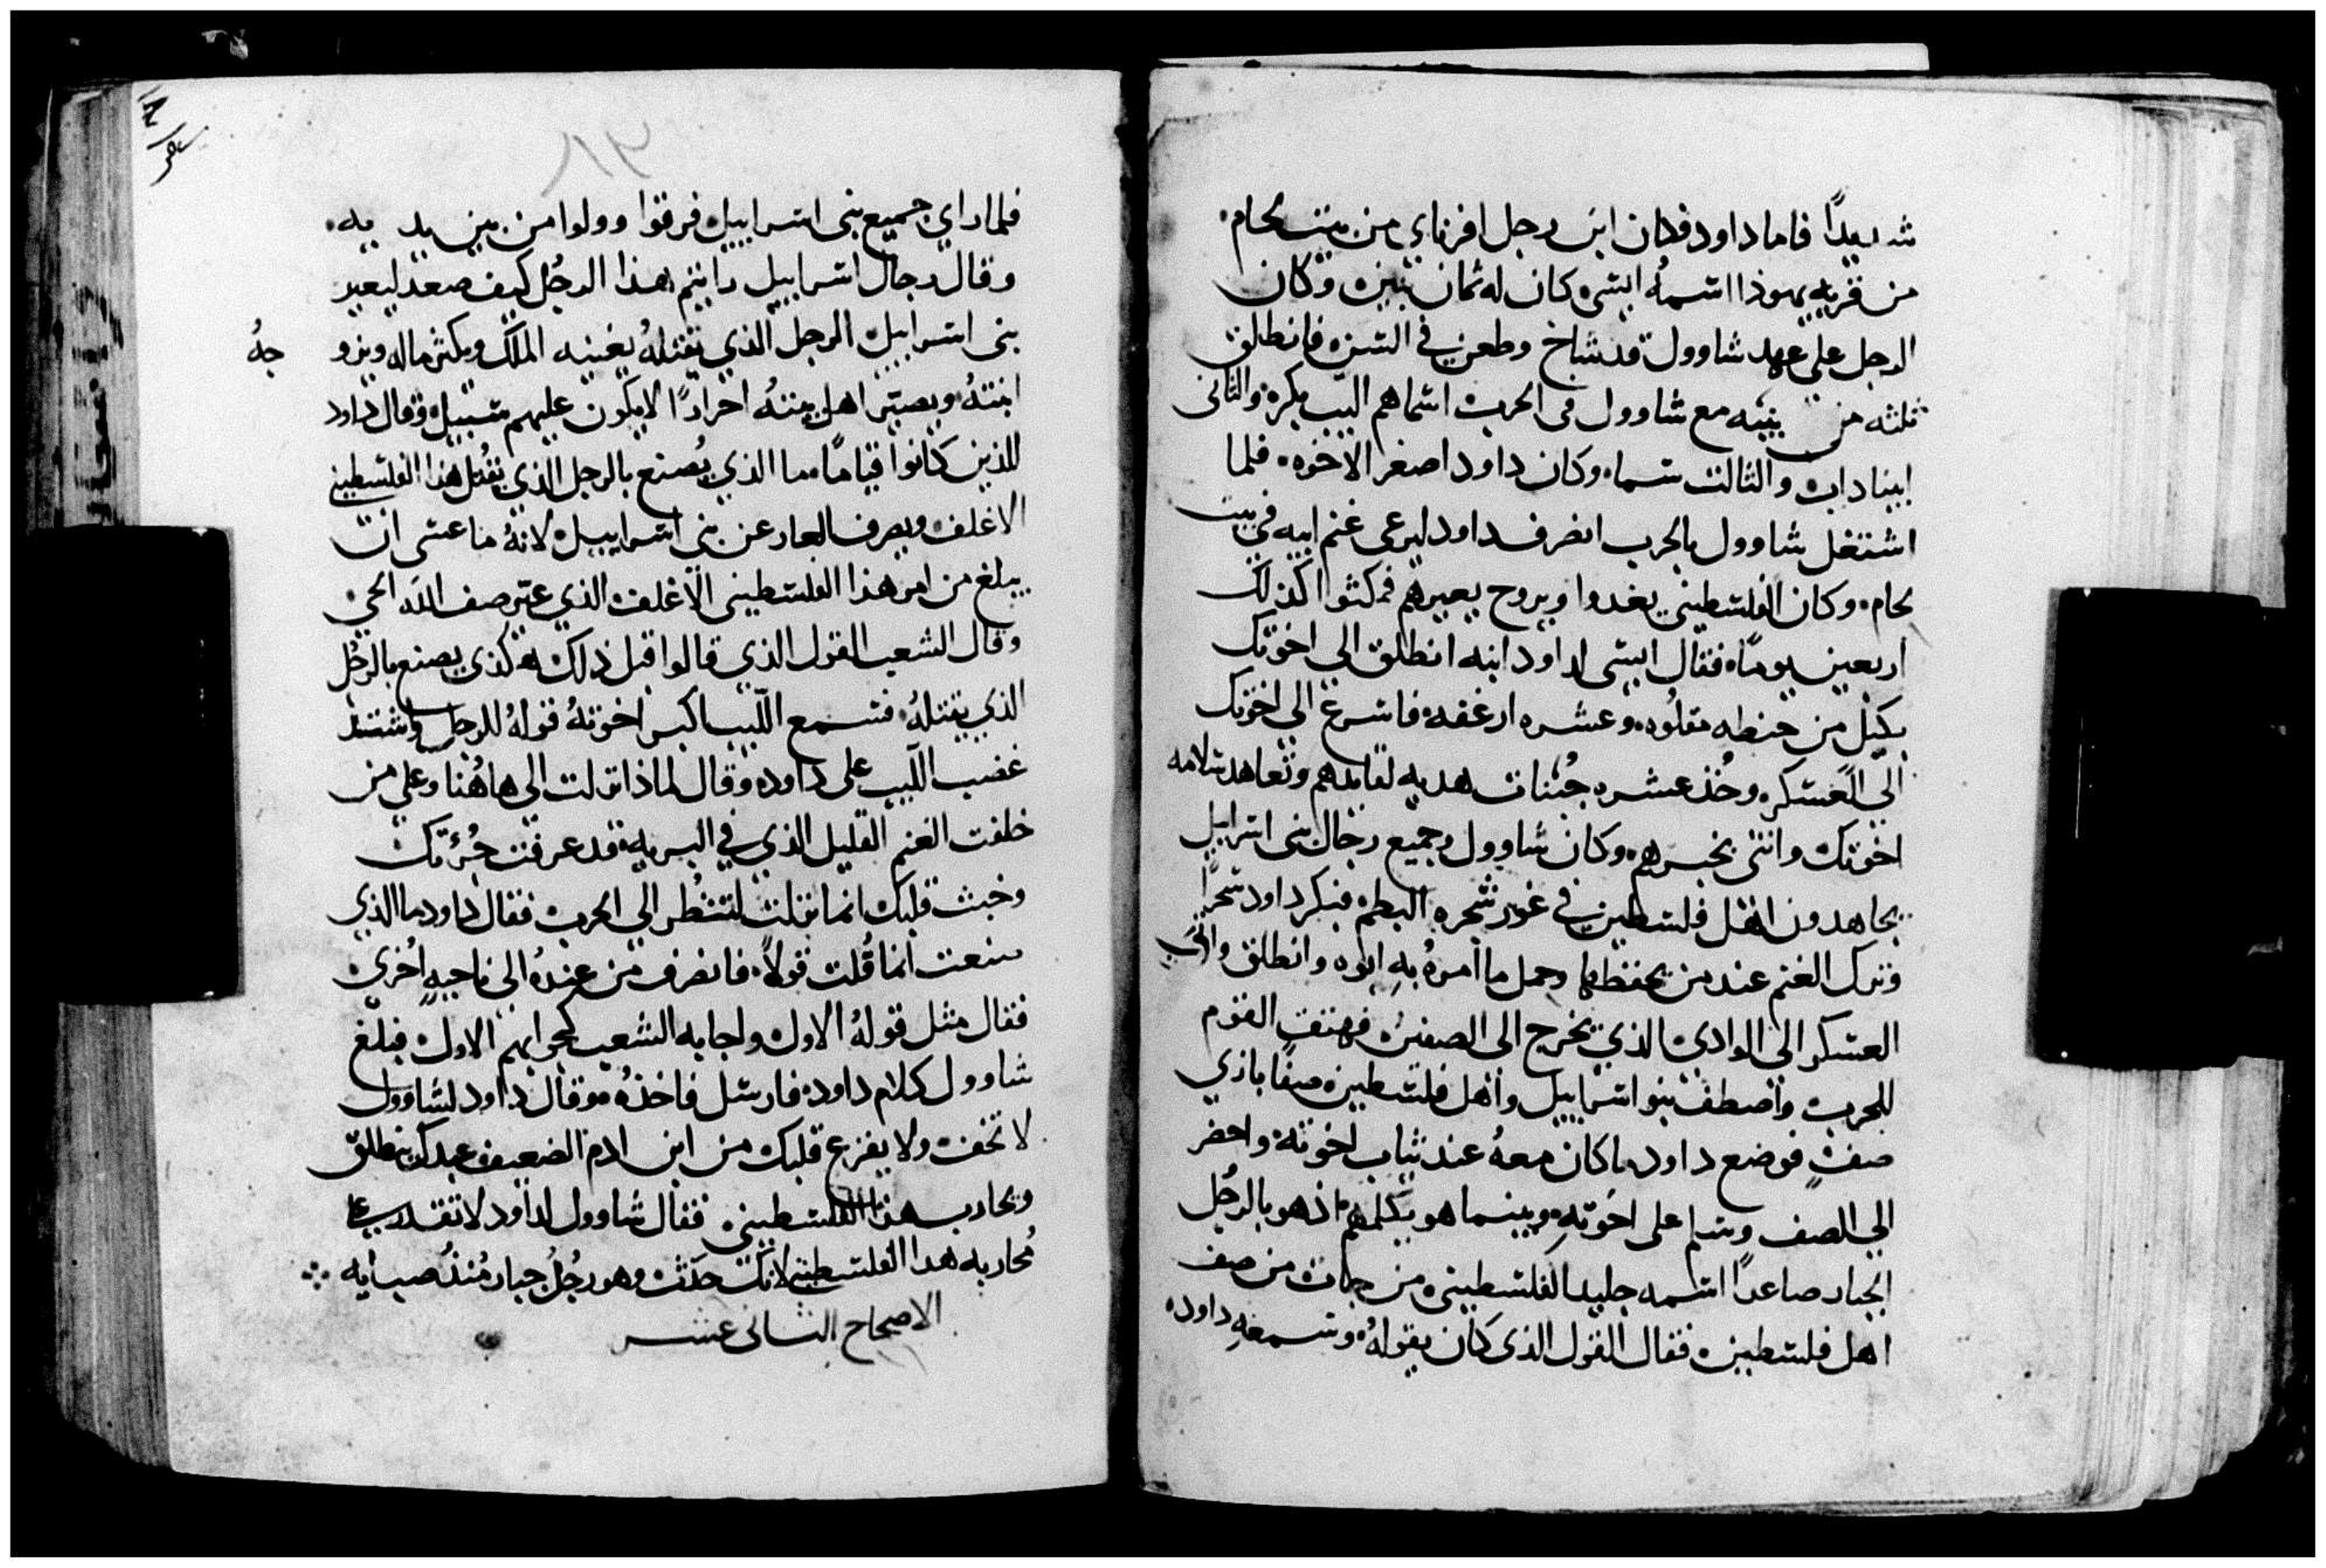 شديدًا فاما داود فكان ابن رجل افرثاي من بيت لحام.
من قرية يهوذا اسمه ايشى كان له ثمان بنين وكان
الرجل على عهد شاوول قد شاخ وطعن في السن فانطلق
ثلثه من بنيه مع شاوول فى الحرب اسماهم اليب بكره والثانى
ابيناداب والثالث سماه وكان داود اصغر الاخوه فلما
اشتغل شاوول بالحرب انصرف داود ليرعى غنم ابيه في بيت
لحام. وكان الفلسطينى يغدوا ويروح يعيرهم فمكثوا كذلك
اربعين يومًا. فقال ايشى لداود ابنه انطلق الي اخوتك
بكيل من حنطه مقلوه. وعشره ارغفه فاسرع الى اخوتك
الى العسكر. وخذ عشره جبنات هديه لقايدهم وتعاهد سلامه
اخوتك وائتنى بخبرهم. وكان شاوول وجميع رجال بنى اسراييل
يجاهدون اهل فلسطين في غور شجره البطم فبكر داود سحرًا
وترك الغنم عند من يحفظها وحمل ما امره به ابوه وانطلق واتى
العسكر الى الوادى الذي يخرج الى الصفين فهتف القوم
للحرب واصطف بنو اسراييل واهل فلسطين صفًا بازي
صفٍ فوضع داود ما كان معهُ عند ثياب اخوته واحضر
الي الصف وسلم على اخوته وبينما هو يكلمهم اذ هو بالرجُل
الجبار صاعدًا اسمه جليد الفلسطينى من جات من صف
اهل فلسطين. فقال القول الذى كان يقوله. وسمعه داود.
فلما راي جميع بنى اسراييل فرقوا وولوا من بين يديه.
وقال رجال اسراييل رايتم هذا الرجُل كيف صعد ليعير
بنى اسراييل الرجل الذي يقتلهُ يغنيه الملك ويكثر ماله ويزو
جهُ
ابنتهُ ويصير اهل بيتهُ احرارًا لا يكون عليهم سبيل فقال داود
للذين كانوا قيامًا. ما الذي يُصنع بالرجل الذي يقتل هذا الفلسطينى
الاغلف ويصرف العار عن بنى اسراييل لانهُ ما عسى ان
يبلغ من امر هذا الفلسطينى الاغلف الذي عير صف الله الحى
وقال الشعب القول الذي قالوا قبل ذلك هكذى يصنع بالرجُل
الذي يقتلهُ. فسمع الليب اكبر اخوتهُ قولهُ للرجل واشتد
غضب الليب على داود. وقال لماذا نزلت الي هاهُنا وعلي من
خلفت الغنم القليل الذي في البريه قد عرفت جُرءتك
وخبث قلبك انما نزلت لتنظُر الي الحرب فقال داود ما الذي
صنعت انما قُلت قولاً. فانصرف من عندهُ الى ناحيهٍ اُخرى
فقال مثل قولهُ الاول واجابه الشعب كجوابهم الاول. فبلغ
شاوول كلام داود. فارسل فاخذهُ. وقال داود لشاوول
لا تخف ولا يفزع قلبك من ابن ادم الضعيف عبدك ينطلق
ويحارب هذا الفلسطينى. فقال شاوول لداود لا تقدر على
مُحاربه هدا الفلسطينى لانك حدَث وهو رجُل جبار مُنذُ صبايه
الاصحاح الثانى عشر